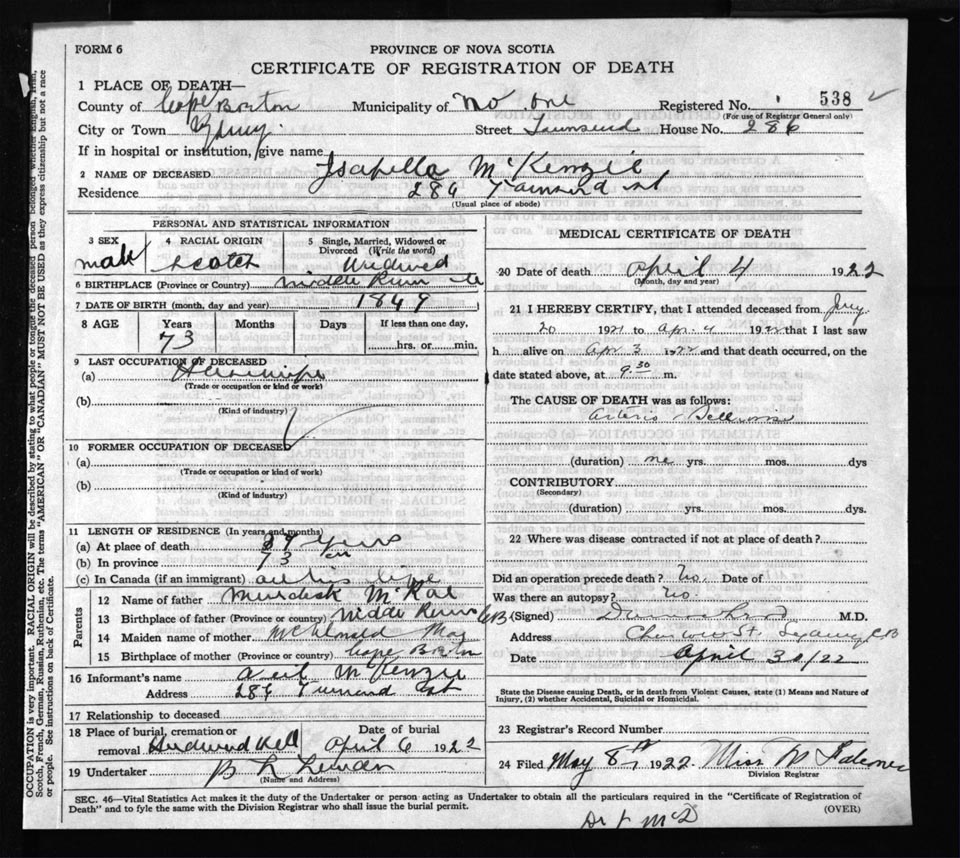 FORM 6
PROVINCE OF NOVA SCOTIA
CERTIFICATE OF REGISTRATION OF DEATH
1 PLACE OF DEATH—
County of Cape Breton Municipality of No. One Registered No. 538
(For use of Registrar General only)
City or Town Sydney. Street Townsend House No. 286
If in hospital or institution, give name
2 NAME OF DECEASED Isabella McKenzie
Residence 286 Townsend St
(Usual place of abode)
PERSONAL AND STATISTICAL INFORMATION
3 SEX male
4 RACIAL ORIGIN Scotch
5 Single, Married, Widowed or Divorced (Write the word) Widowed
6 BIRTHPLACE (Province or Country) Middle River
7 DATE OF BIRTH (month, day and year) 1849
8 AGE Years 73 Months Days If less than one day, ....hrs. or ....min.
9 LAST OCCUPATION OF DECEASED
(a) Housewife
(Trade or occupation or kind of work)
(b)
(Kind of industry)
10 FORMER OCCUPATION OF DECEASED
(a)
(Trade or occupation or kind of work)
(b)
(Kind of industry)
11 LENGTH OF RESIDENCE (In years and months)
(a) At place of death 39 years
(b) In province 73
(c) In Canada (if an immigrant) all his life
Parents
12 Name of father Murdock McRae
13 Birthplace of father (Province or country) Middle River CB
14 Maiden name of mother McDonald
15 Birthplace of mother (Province or country) Cape Breton
16 Informant's name McKenzie
Address 286 Townsend St
17 Relationship to deceased
18 Place of burial, cremation or removal Hardwood Hill Date of burial April 6 1922
19 Undertaker
(Name and Address)
MEDICAL CERTIFICATE OF DEATH
20 Date of death April 4 1922
(Month, day and year)
21 I HEREBY CERTIFY, that I attended deceased from
20 1921 to Apr. 4 1922 that I last saw
h alive on Apr 3 1922 and that death occurred, on the
date stated above, at 9.30 m.
The CAUSE OF DEATH was as follows:
Arterio Sclerosis
(duration) one yrs. mos. dys
CONTRIBUTORY
(Secondary)
(duration) yrs. mos. dys.
22 Where was disease contracted if not at place of death?
Did an operation precede death? No. Date of
Was there an autopsy? No.
(Signed) M.D.
Address St. Sydney CB
Date April 30/22
State the Disease causing Death, or in death from Violent Causes, state (1) Means and Nature of Injury, (2) whether Accidental, Suicidal or Homicidal.
23 Registrar's Record Number
24 Filed May 8th 1922. Miss M
Division Registrar
SEC. 46—Vital Statistics Act makes it the duty of the Undertaker or person acting as Undertaker to obtain all the particulars required in the "Certificate of Registration of
Death" and to fyle the same with the Division Registrar who shall issue the burial permit. (OVER)
OCCUPATION is very important. RACIAL ORIGIN will be described by stating to what people or tongue the deceased person belonged whether English, Irish,
Scotch, French, German, Russian, Ruthenian, etc. The terms "AMERICAN" OR "CANADIAN" MUST NOT BE USED as they express citizenship but not a race
or people. See instructions on back of Certificate.